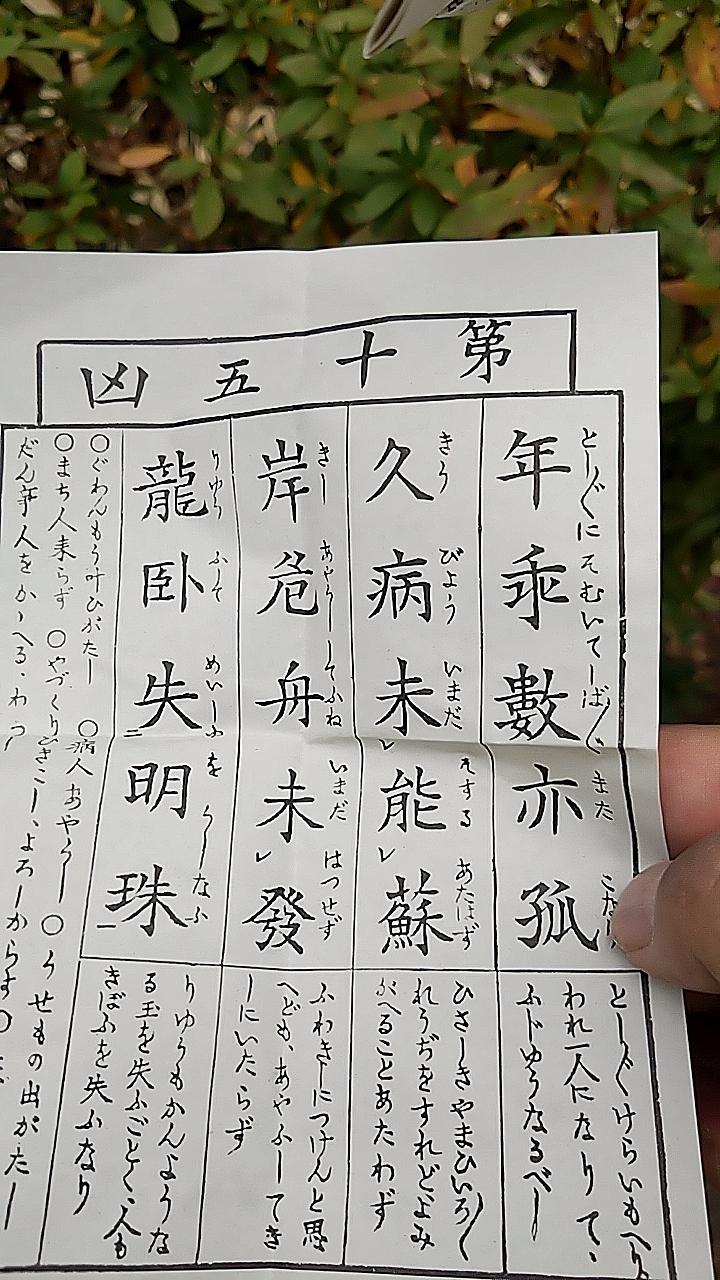 第十五凶
年乖數亦孤
とし〴〵にそむいてしば〴〵また
久病未能蘇
きうびよういまだそするあたはず
岸危舟未發
きしあやうしてふねいまだはつせず
龍臥失明珠
りゆうふしてめいしゆをうしなふ
とし〴〵けらいもへり
われ一人になりて、
ふじゆうなるべし
ひさしきやまひいろ〳〵
れうぢをすれどよみ
がへることあたわず
ふわきしにつけんと思
へども、あやふしてき
しにいたらず
りゆうもかんような
る玉を失ふごとく、人も
きぼふを失ふなり
○ぐわんもう叶ひがたし ○病人あやうし ○うせもの出がたし
○まち人来らず ○やづくりひきこし、よろしからず○
だん事人をかゝへる、わろ